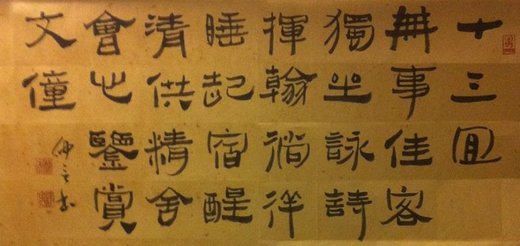 十三宜
無事佳客
獨坐詠詩
揮翰徜徉
睡起宿醒
清供精舍
會心鑒賞
文僮